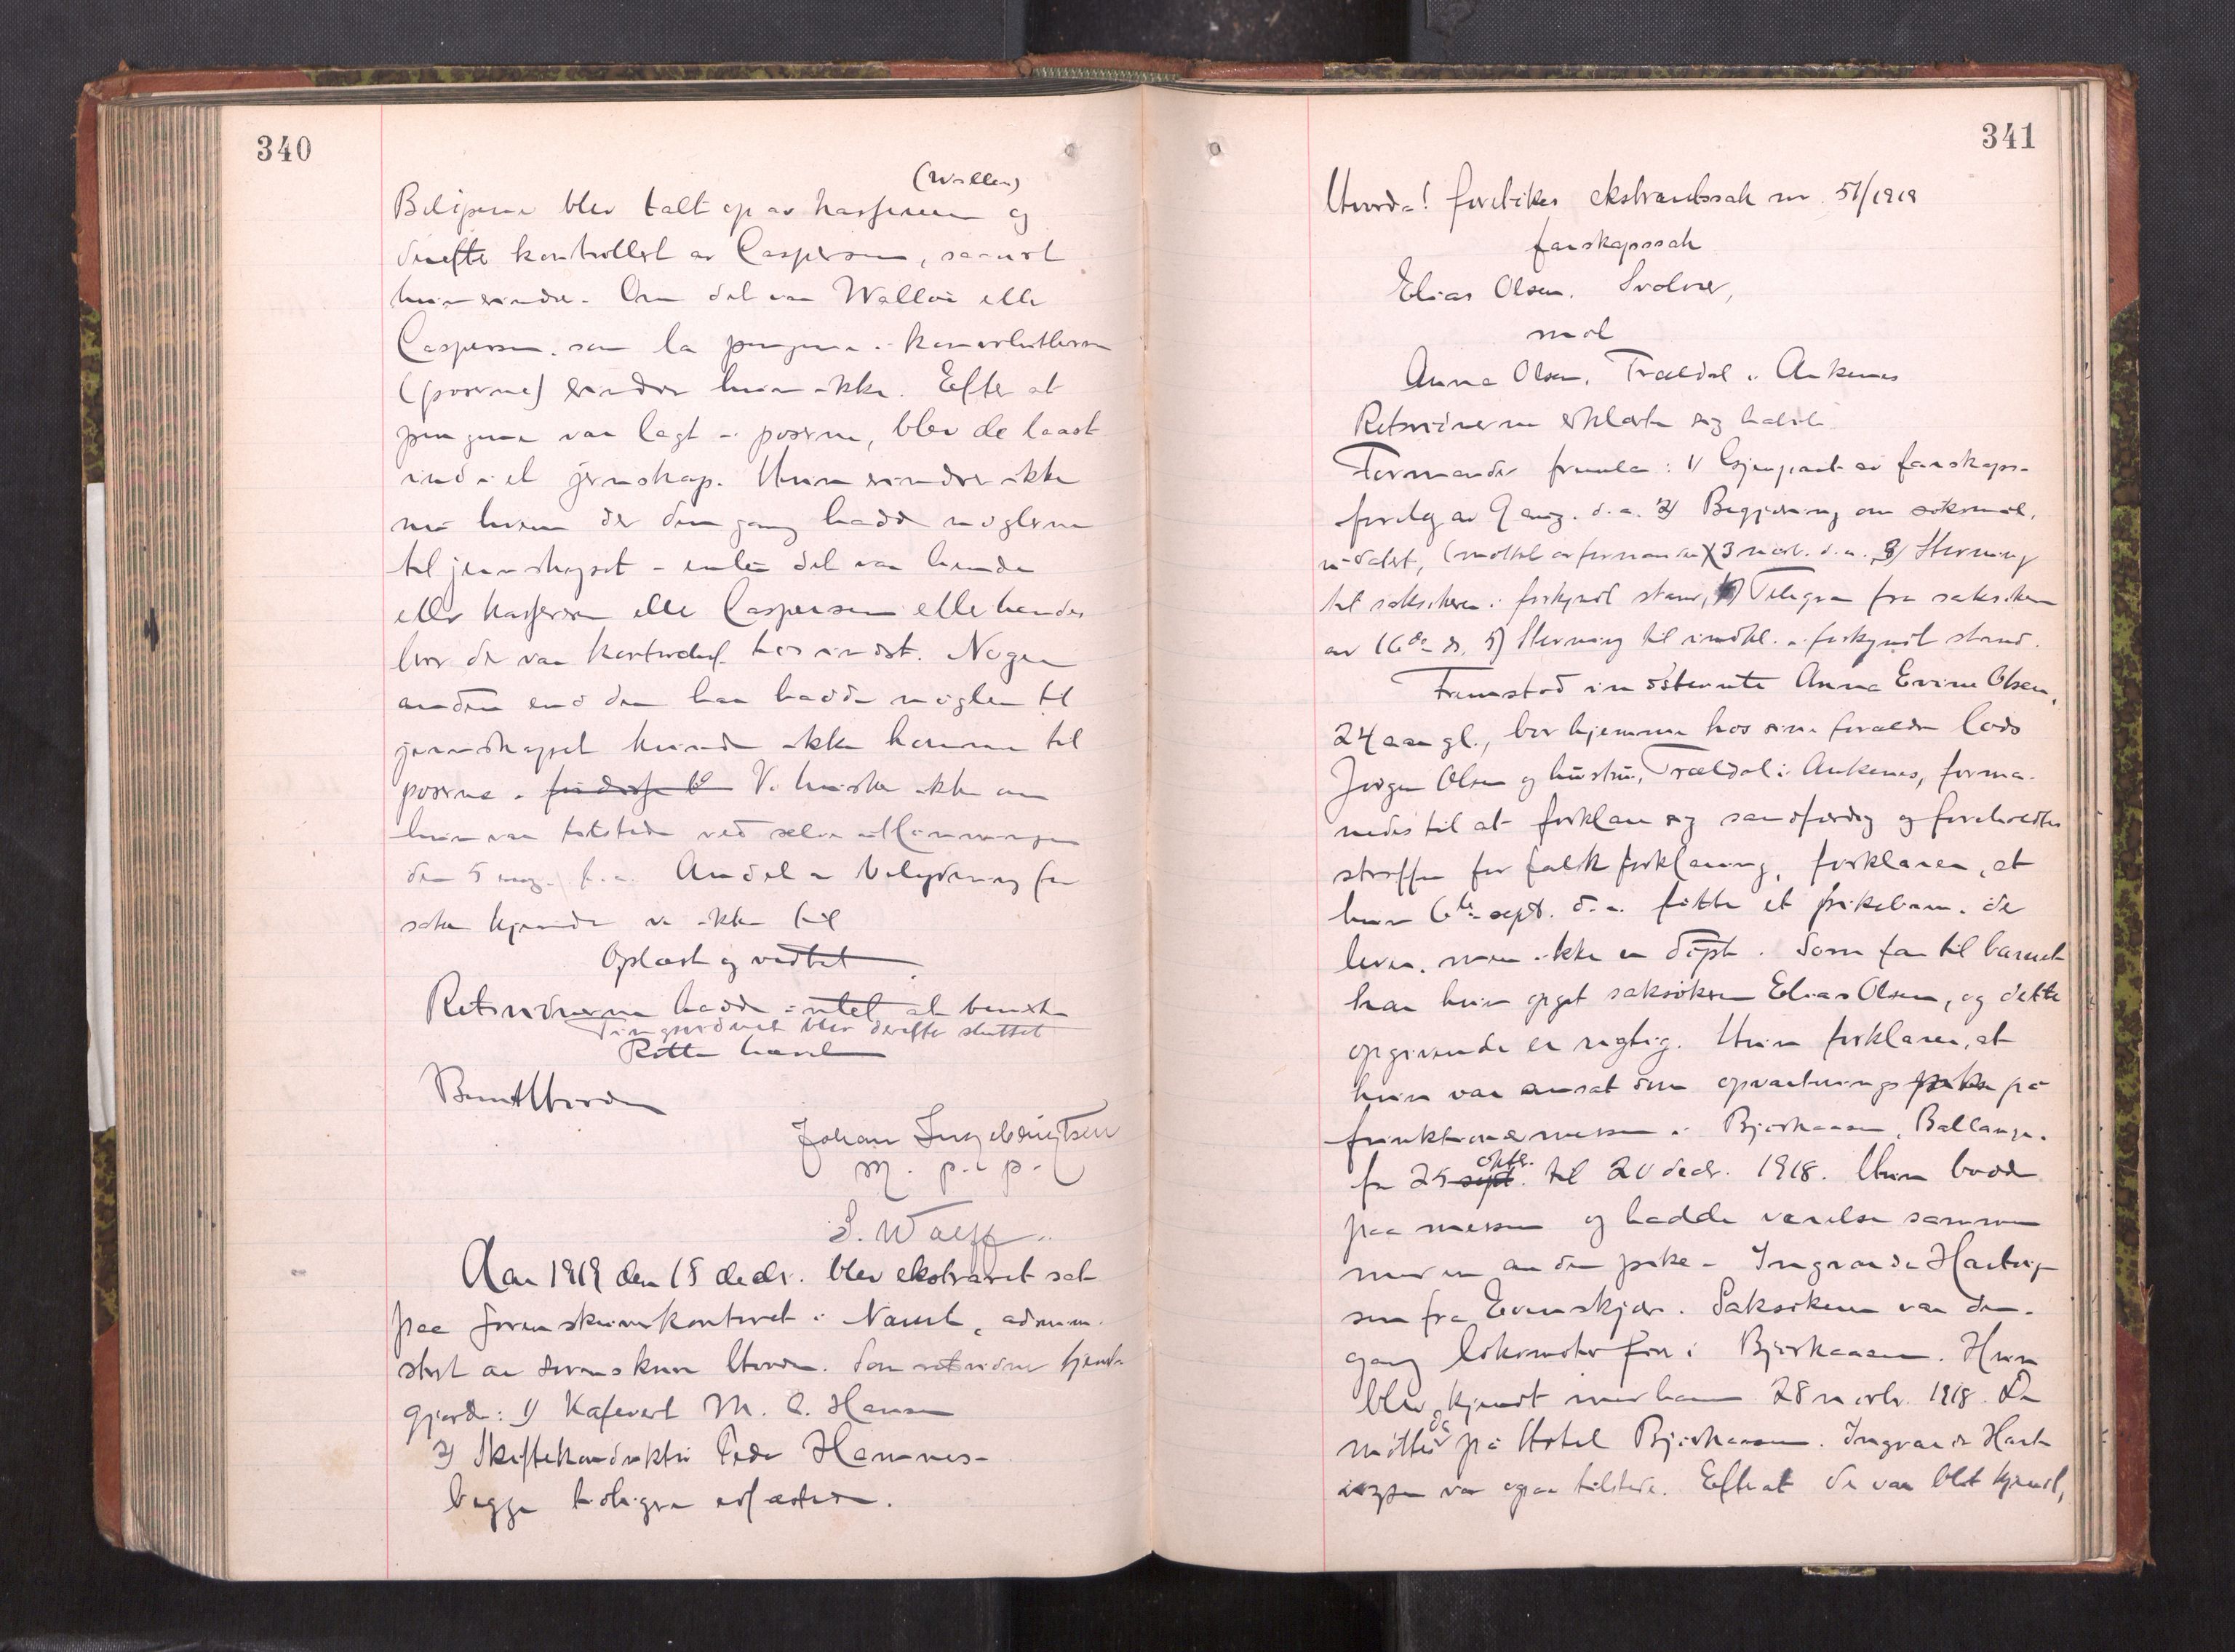 340
(Walløe)
Beløpene blev talt op av kassereren og
derefter kontrollert av Caspersen, saavidt
hun erindrer. Om det var Walløe eller
Caspersen, som la pengene i konvolutterne
(poserne) erindrer hun ikke. Efter at
pengene var lagt i poserne, blev de laast
ind i et jernskap. Hun erindrer ikke
nu hvem der den gang hadde nøglerne
til jernskapet - enten det var hende
eller kassereren eller Caspersen eller
der var kontorchef. Nogen
anden end den som hadde nøglen til
jernskapet kunde ikke komme til
poserne. V. husker ikke om
hun var tilstede ved selve utlønningen
den 5 aug. f.a. Andet av betydning for
saken kjender v. ikke til
Oplæst og vedtat
Retsvidnerne hadde intet at bemerke
Tingsvidnet blev derefter sluttet
Retten hævet
Johan Ingebrigtsen
m. p. p.
S. Wolff
Aar 1919 den 18 decbr. blev ekstraret sat
paa sorenskriverkontoret i Narvik, admini-
stret av sorenskriver. Som retsvidner tjeneste
gjorde: 1) Kafevert M. C. Hansen
2) Skiftekonduktør Peder Hamnes-
begge tidligere edfæstede.
341
Hvorda! foretokes ekstraretssak nr. 51/1919
farskapssak
Elias Olsen, Svolvær,
mot
Anna Olsen, Trældal i Ankenes
Retsvidnerne erklærte sig habile
Formanden fremla: 1) Gjenpart av farskaps-
forelæg av 9 aug. d.a. 2) Begjæring om søksmål,
udatert, (mottat av formanden 3 novb. d.a. 3) Stevning
til saksøkeren i forkyndt stand, 4) Telegram fra saksøkeren
av 16de ds. 5) Stevning til indst. i forkyndt stand.
Fremstod indstevnte Anna Evine Olsen,
24 aar gl., bor hjemme hos sine forældre Lods
Jørgen Olsen og hustru, Trældal i Ankenes, forma-
nedes til at forklare sig sandfærdig og foreholdtes
straffen for falsk forklaring, forklarer, at
hun 6te sept. d.a. fødte et pikebarn, der
lever, men ikke er døpt. Som far til barnet
har hun opgit saksøkeren Elias Olsen, og dette
opgivende er rigtig. Hun forklarer, at
hun var ansat som opvartningspike på
funktionærmessen i Bjørkaasen, Ballangen
fra 25 sept. oktbr. til 20 decbr. 1918. Hun bodde
paa messen og hadde værelse sammen
med en anden pike - Ingvarda Hartvig-
sen fra Evenskjær. Saksøkeren var den-
gang lokomotivfører i Bjørkaasen. Hun
blev kjendt med ham 28 novbr. 1918. De
møttes da på Hotel Bjørkaasen. Ingvarda Hart
vigsen var ogsaa tilstede. Efterat de var blit kjendt,